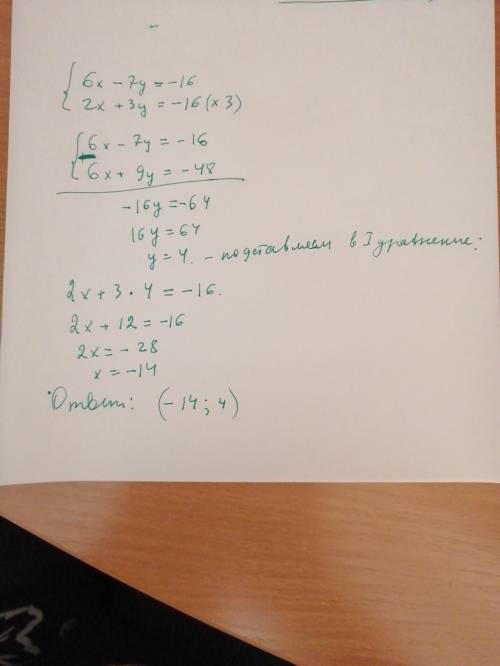 6x - 7y = -16
2x + 3y = -16 (x 3)
6x - 7y = -16
6x + 9y = -48
-16y = -64
16y = 64
y = 4. - подставляем в I уравнение:
2x + 3 • 4 = -16.
2x + 12 = -16
2x = - 28
x = -14
Ответ: (-14; 4)